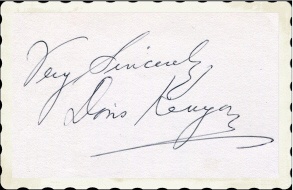 Very Sincerely
Doris Kenyon